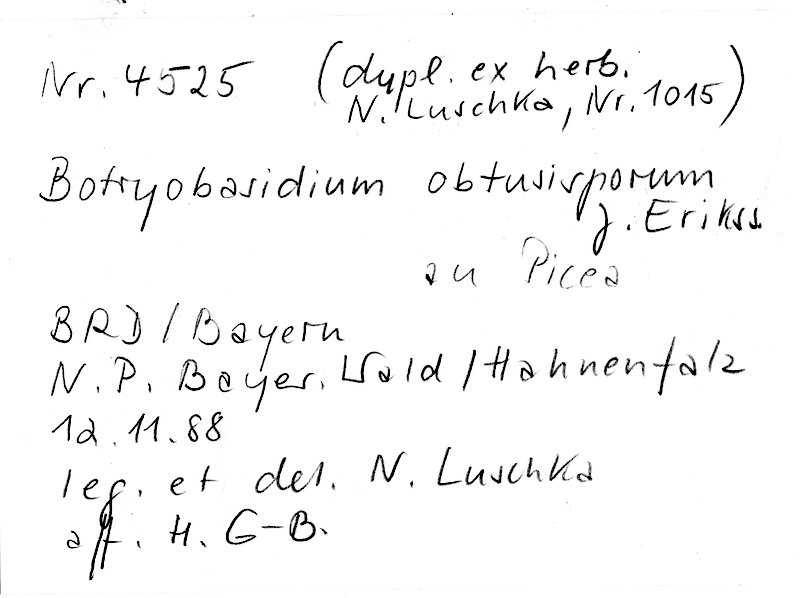 Nr. 4525 (dupl. ex herb.
N. Luschka, Nr. 1015)
Botryobasidium obtusisporum
J. Erikss.
an Picea
BRD / Bayern
N. P. Bayer. Wald / Hahnenfalz
12.11.88
leg. et det. N. Luschka
aff. H. G-B.